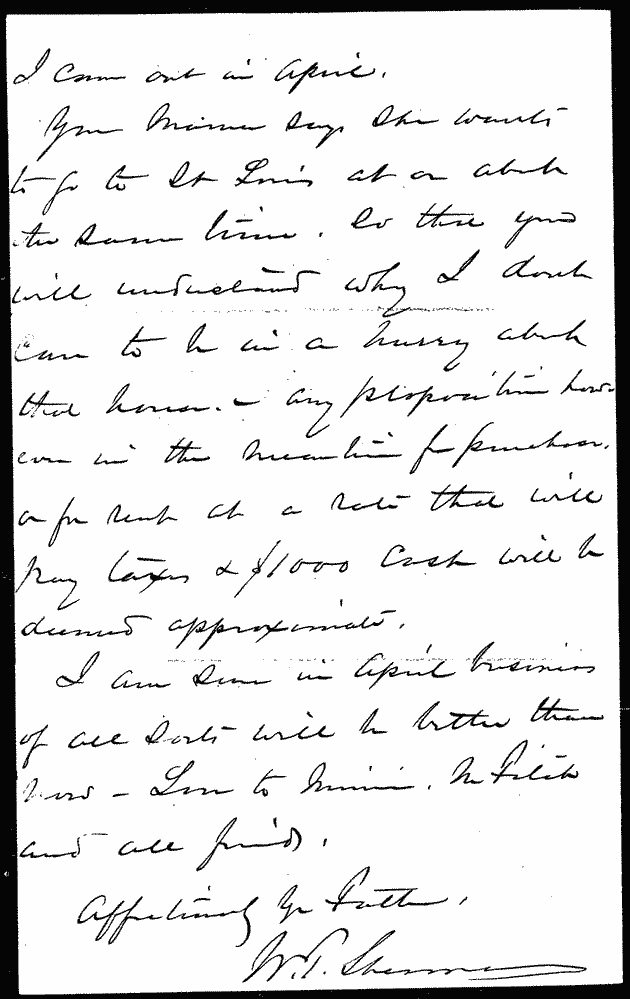 I come out in April.
Your Mama says she wants
to go to St Louis at or about
the same time. So that you
will understand why I dont
care to be in a hurry about
that house. – any proposition how-
ever in the meantime for purchase.
or for rent at a rate that will
pay taxes & $1000 cash will be
deemed approximate.
I am sure in April business
of all sorts will be better than
now – Love to Minnie. Mr Fitch
and all friends.
Affectionately Yr Father,
W. T. Sherman